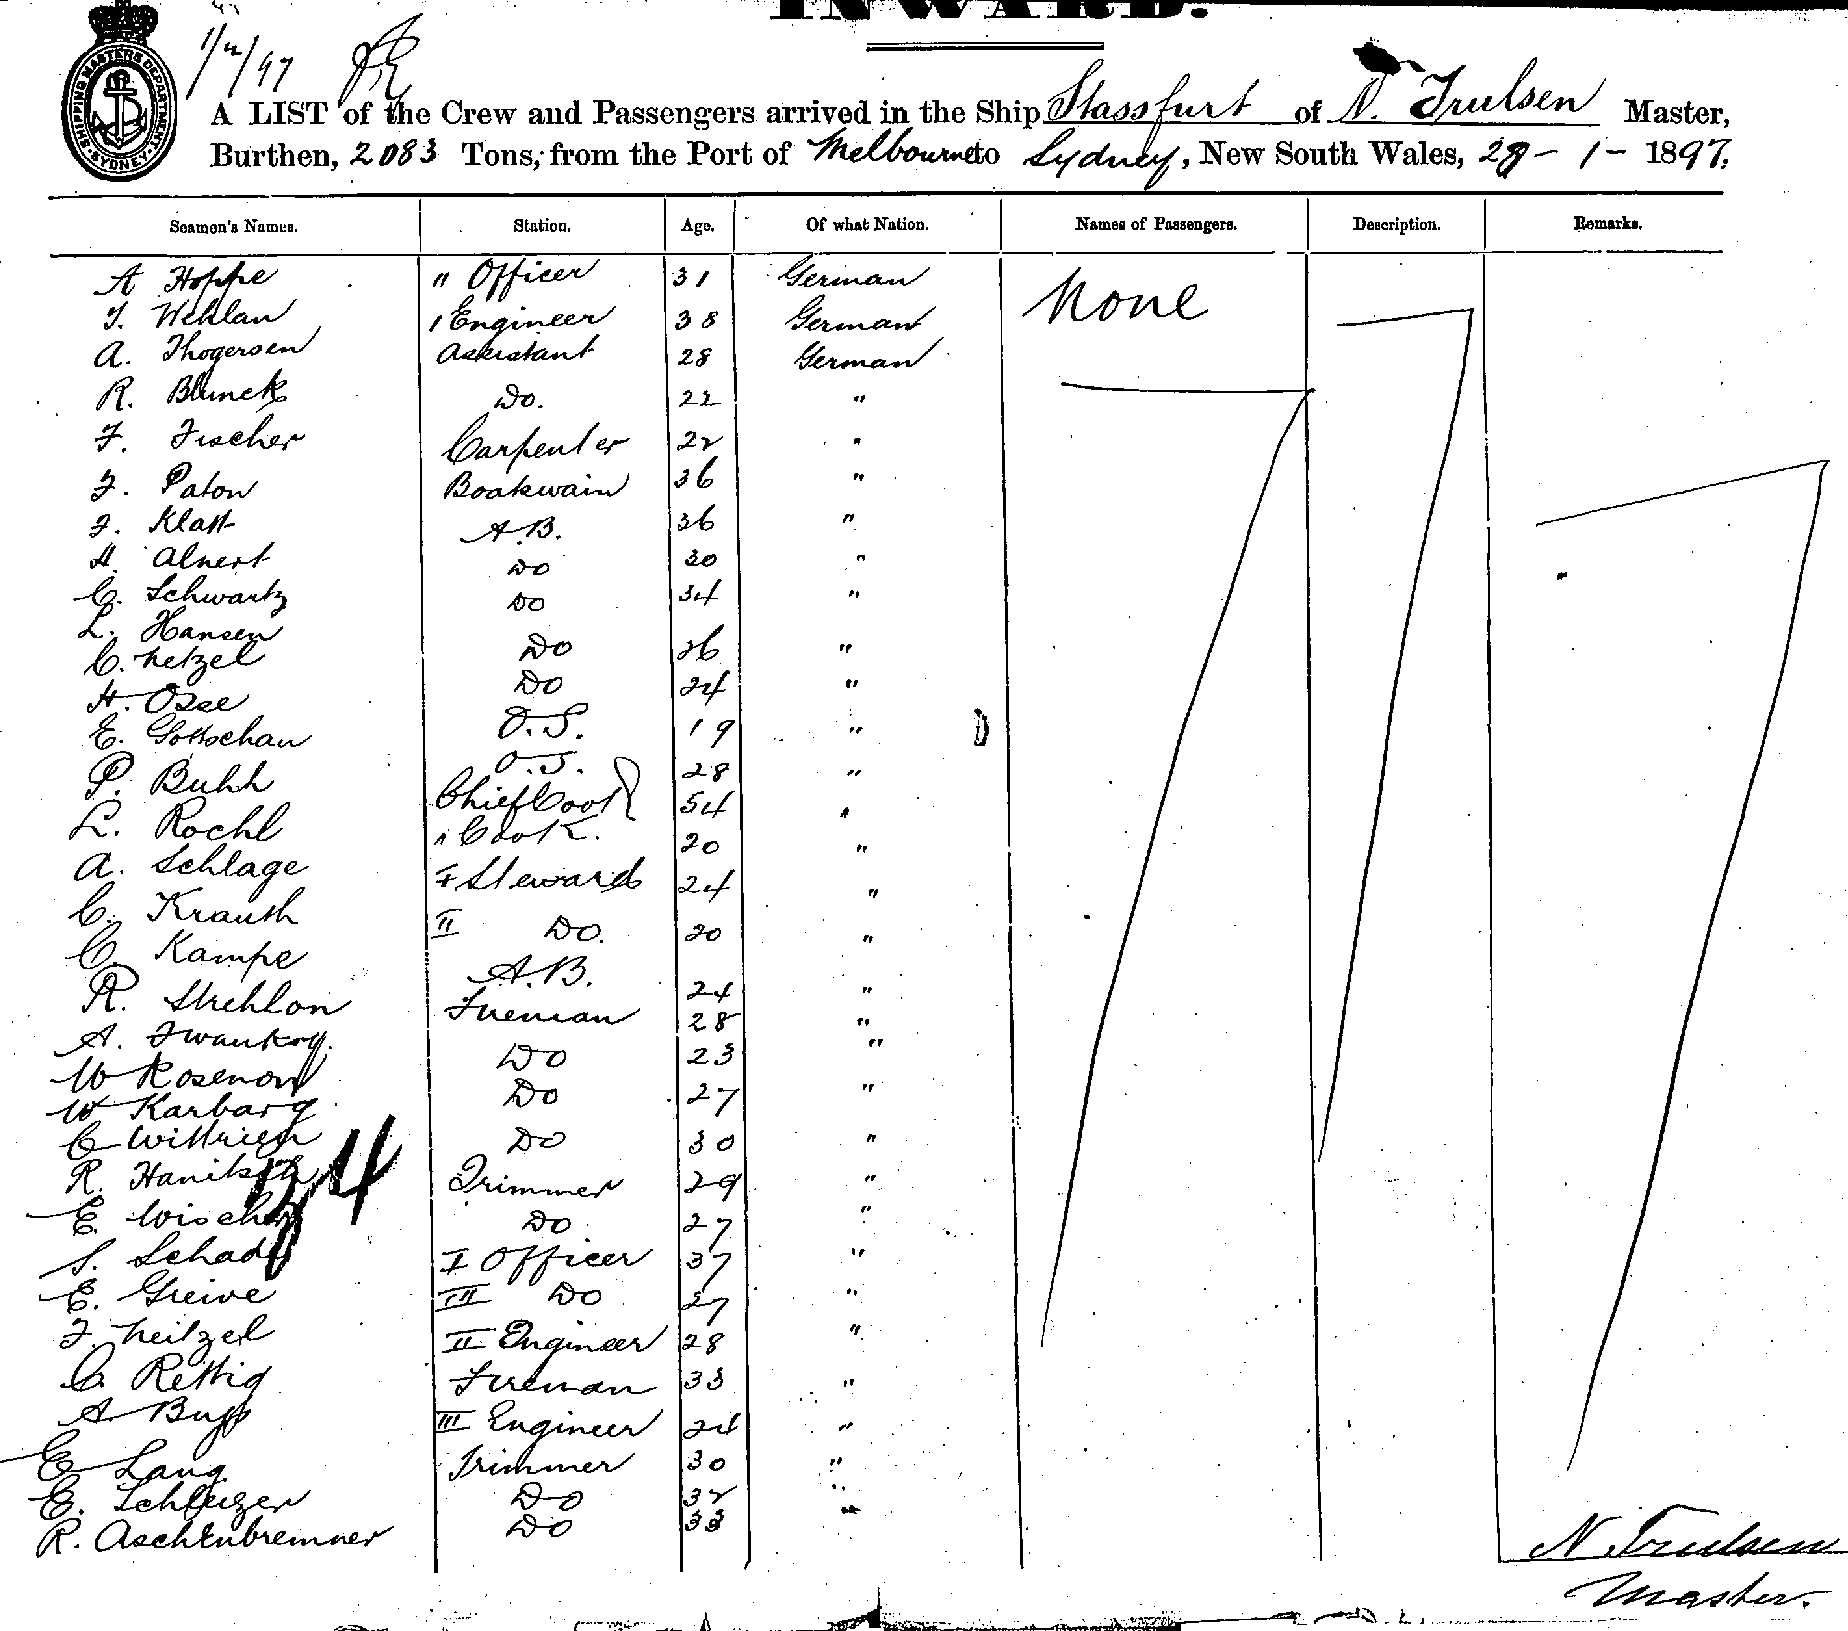 INWARD.
1/2/97
SHIPPING MASTERS DEPARTMENT SYDNEY
A LIST of the Crew and Passengers arrived in the Ship Stassfurt of N. Trulsen Master,
Burthen, 2083 Tons, from the Port of Melbourne to Sydney, New South Wales, 29 - 1 - 1897.
Seamen's Names. Station. Age. Of what Nation. Names of Passengers. Description. Remarks.
A Hoppe " Officer 31 German None
J. Wehlan 1 Engineer 38 German
A. Thogersen Assistant 28 German
R. Blunck Do. 22 "
F. Fischer Carpenter 22 "
F. Paton Boatswain 36 "
F. Klatt A.B. 36 "
H. Alnert Do 30 "
C. Schwartz Do 34 "
L. Hansen Do 26 "
C. Netzel Do 24 "
H. Osse O.S. 19 "
E. Gottschau O.S. 28 "
P. Buhh Chief Cook 54 "
L. Rochl " Cook. 20 "
A. Schlage I Steward 24 "
C. Krauth II Do. 20 "
C. Kampe A.B. 24 "
R. Strehlon Fireman 28 "
A. Do 23 "
W Rosenow Do 27 "
W Karbarg Do 30 "
C Wittrien Trimmer 29 "
R. Do 27 "
E. Wischer I Officer 37 "
S. Schade III Do 27 "
E. Greive II Engineer 28 "
F. Neitzel Fireman 33 "
C. Rettig III Engineer 24 "
A Bupp Trimmer 30 "
E Lang Do 32 "
E. Do 33 "
R. Aschenbremner
34
N Trulsen
Master.